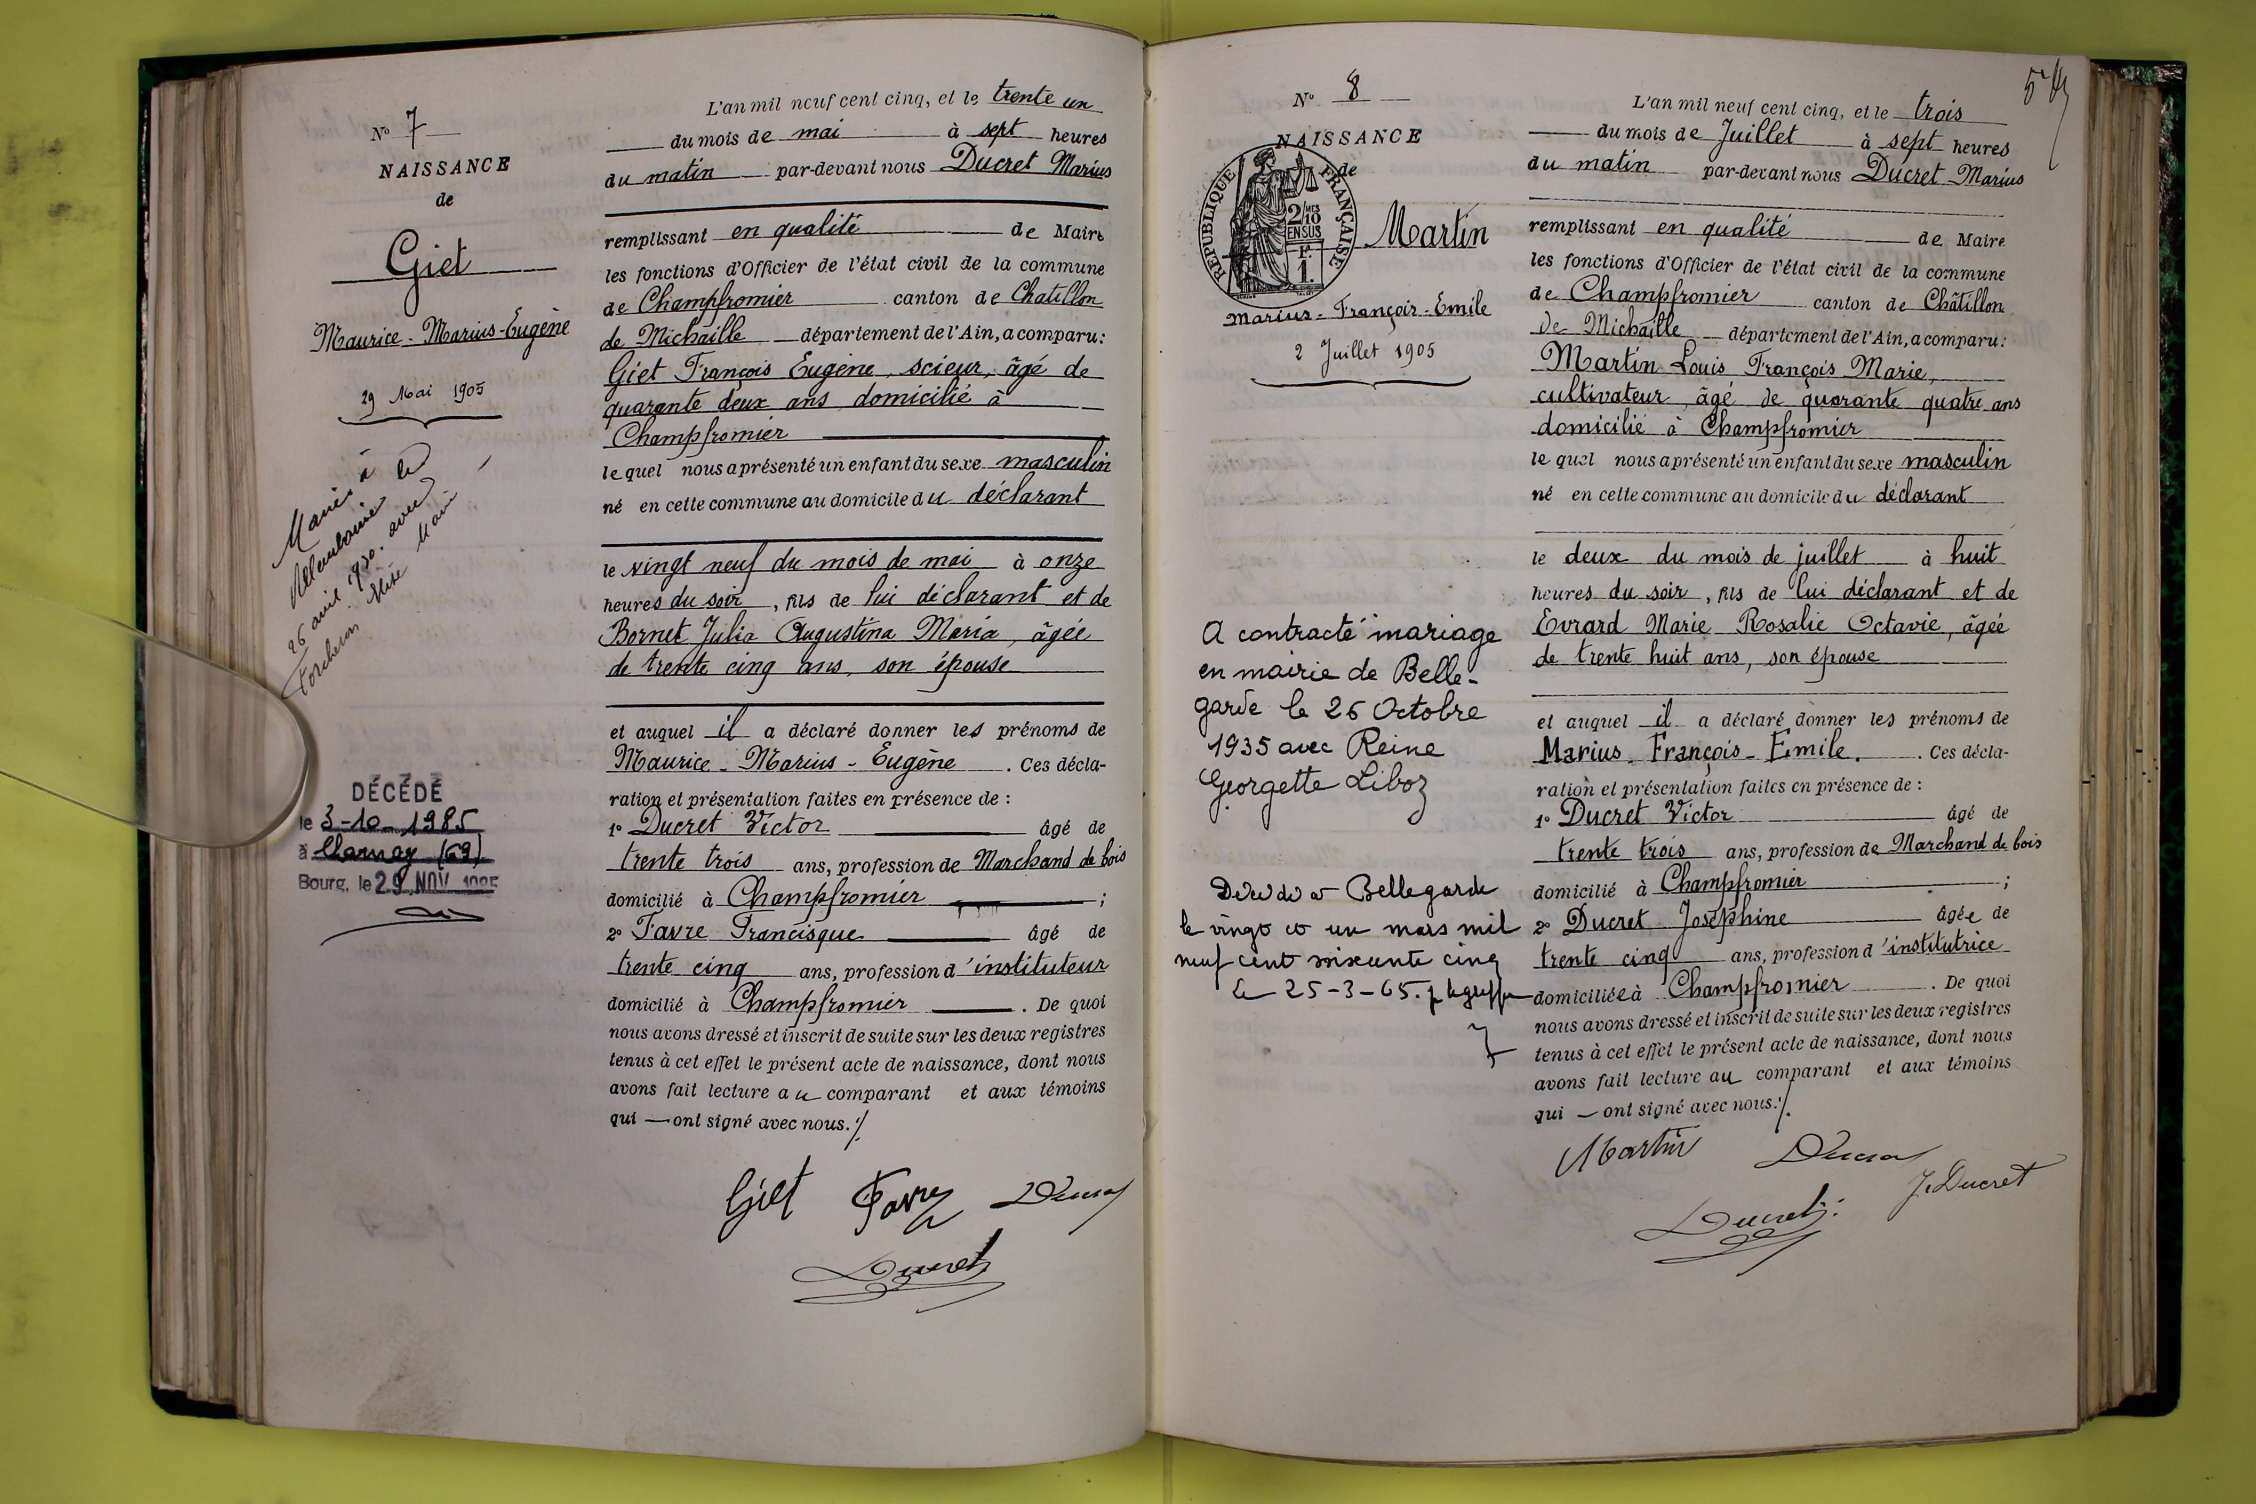 N° 7
NAISSANCE
de
Giet
Maurice - Marius - Eugène
29 Mai 1905
Marié à
Villeurbanne le
26 avril 1930. avec
Marie
DÉCÉDÉ
le 3-10-1985
à Charnay (69)
Bourg, le 29 NOV 1985
L'an mil neuf cent cinq, et le trente un
du mois de mai à sept heures
du matin par-devant nous Ducret Marius
remplissant en qualité de Maire
les fonctions d'Officier de l'état civil de la commune
de Champfromier canton de Chatillon
de Michaille département de l'Ain, a comparu:
Giet François Eugène, scieur, âgé de
quarante deux ans domicilié à
Champfromier
lequel nous a présenté un enfant du sexe masculin
né en cette commune au domicile du déclarant
le vingt neuf du mois de mai à onze
heures du soir, fils de lui déclarant et de
Bornet Julia Augustina Maria, âgée
de trente cinq ans, son épouse
et auquel il a déclaré donner les prénoms de
Maurice - Marius - Eugène. Ces décla-
ration et présentation faites en présence de :
1° Ducret Victor âgé de
trente trois ans, profession de Marchand de bois
domicilié à Champfromier ;
2° Favre Francisque âgé de
trente cinq ans, profession d'instituteur
domicilié à Champfromier. De quoi
nous avons dressé et inscrit de suite sur les deux registres
tenus à cet effet le présent acte de naissance, dont nous
avons fait lecture au comparant et aux témoins
qui — ont signé avec nous ./.
Giet Favre Ducret
Ducret
5
N° 8
NAISSANCE
de
RÉPUBLIQUE FRANÇAISE
2/10 MES
EN SUS
1 F.
Martin
Marius - François - Emile
2 Juillet 1905
A contracté mariage
en mairie de Belle-
garde le 26 Octobre
1935 avec Reine
Georgette Liboz
Décédé à Bellegarde
le vingt et un mars mil
neuf cent soixante cinq
le 25-3-65.
L'an mil neuf cent cinq, et le trois
du mois de Juillet à sept heures
du matin par-devant nous Ducret Marius
remplissant en qualité de Maire
les fonctions d'Officier de l'état civil de la commune
de Champfromier canton de Châtillon
de Michaille département de l'Ain, a comparu:
Martin Louis François Marie,
cultivateur âgé de quarante quatre ans
domicilié à Champfromier
lequel nous a présenté un enfant du sexe masculin
né en cette commune au domicile du déclarant
le deux du mois de juillet à huit
heures du soir, fils de lui déclarant et de
Evrard Marie Rosalie Octavie, âgée
de trente huit ans, son épouse
et auquel il a déclaré donner les prénoms de
Marius - François - Emile. Ces décla-
ration et présentation faites en présence de :
1° Ducret Victor âgé de
trente trois ans, profession de Marchand de bois
domicilié à Champfromier ;
2° Ducret Joséphine âgée de
trente cinq ans, profession d'institutrice
domiciliée à Champfromier. De quoi
nous avons dressé et inscrit de suite sur les deux registres
tenus à cet effet le présent acte de naissance, dont nous
avons fait lecture au comparant et aux témoins
qui — ont signé avec nous ./.
Martin Ducret
J. Ducret
Ducret